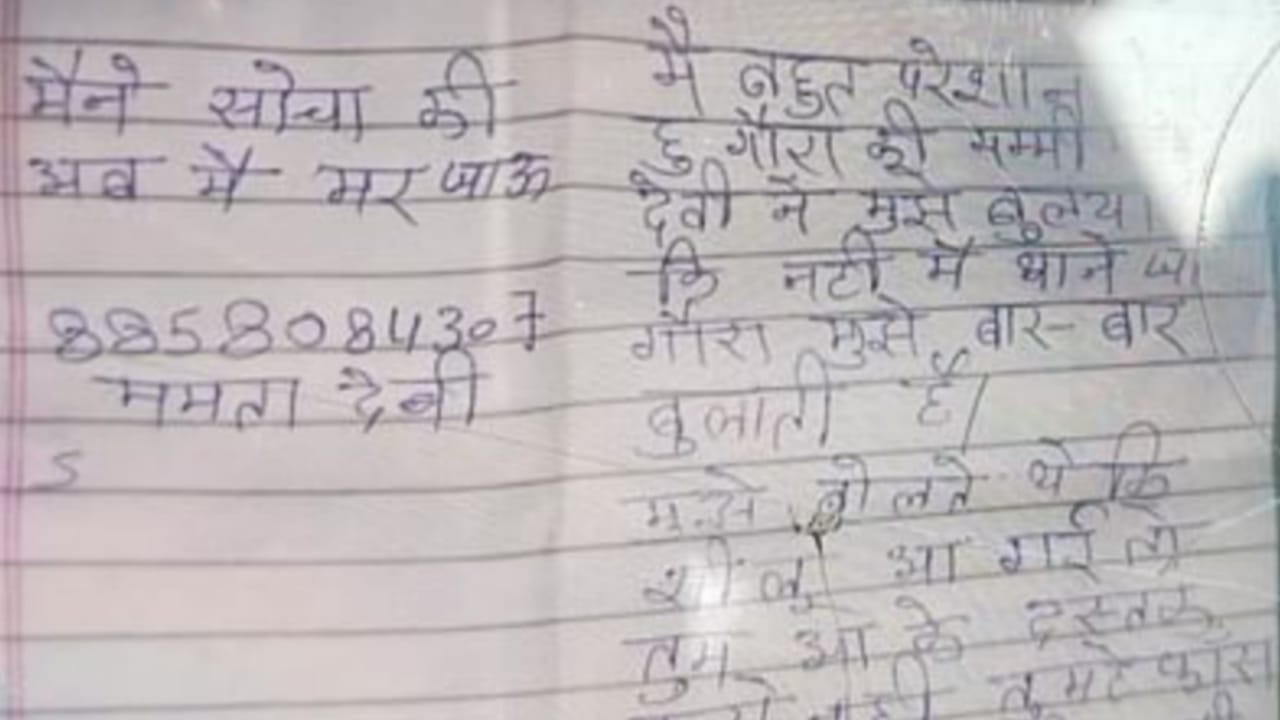 मैने सोचा की
अब मै मर जाऊ
8858084307
ममता देवी
S
मै बहुत परेशान
हु गौरा की मम्मी
देवी ने मुझे बुलया
कि नटी मै थाने जा
गौरा मुझे बार-बार
बुलाती है।
मुझे बोलते थे कि
शीलु आ गई तो
तुम आ के दस्तक